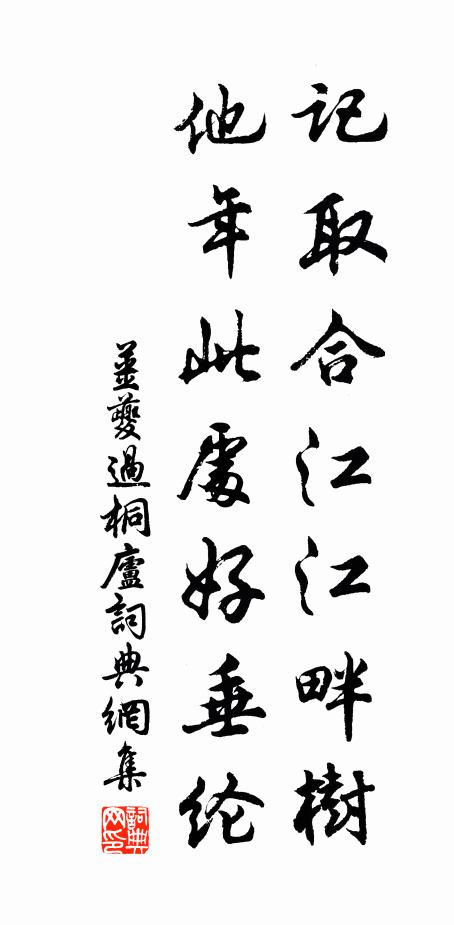 記取合江江畔樹
他年此處好垂纶
姜夔過桐廬詞典網集
詞典网印